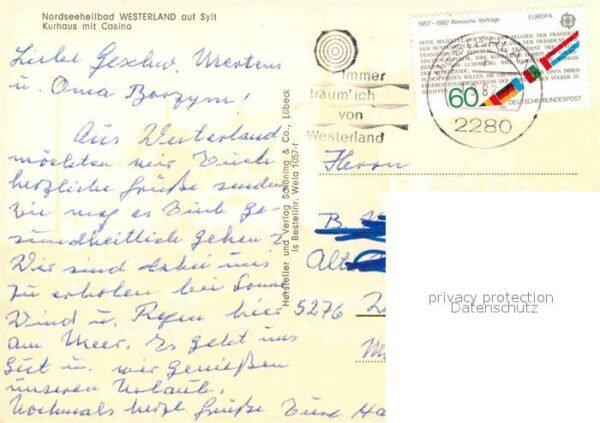 Nordseeheilbad WESTERLAND auf Sylt
Kurhaus mit Casino
Liebe Geschw. Mertens
u. Oma Borzym!
Aus Westerland
möchten wir Euch
herzliche Grüße senden
Wie mag es Euch ge-
sundheitlich gehen?
Wir sind dabei uns
zu erholen bei Sonne
Wind u. Regen hier
am Meer. Es geht uns
gut u. wir genießen
unseren Urlaub.
Nochmals herzl. Grüße Eure
Hersteller und Verlag Schöning & Co., Lübeck
Bestellnr. Wela 1057-f
Immer
träum' ich
von
Westerland
1957-1982 Römische Verträge EUROPA
60
DEUTSCHE BUNDESPOST
2280
Herrn
B.
Alt
5276
privacy protection
Datenschutz